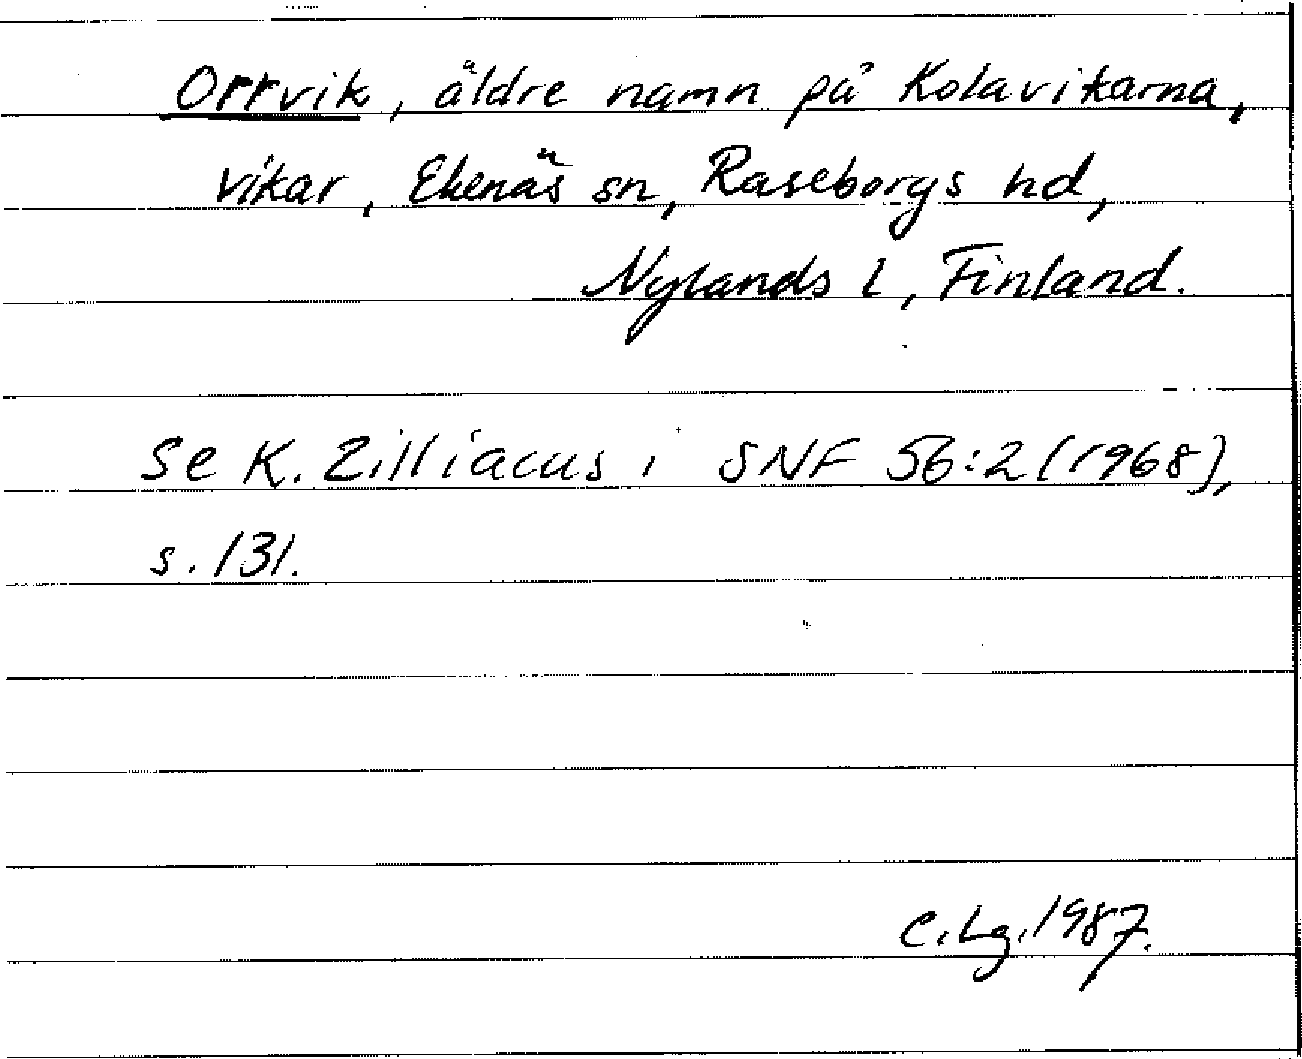 Orrvik, äldre namn på Kolavikarna,
vikar, Ekenäs sn, Raseborgs hd,
Nylands l, Finland.
Se K. Zilliacus i SNF 56:2 (1968),
s. 131.
C. Lg. 1987.